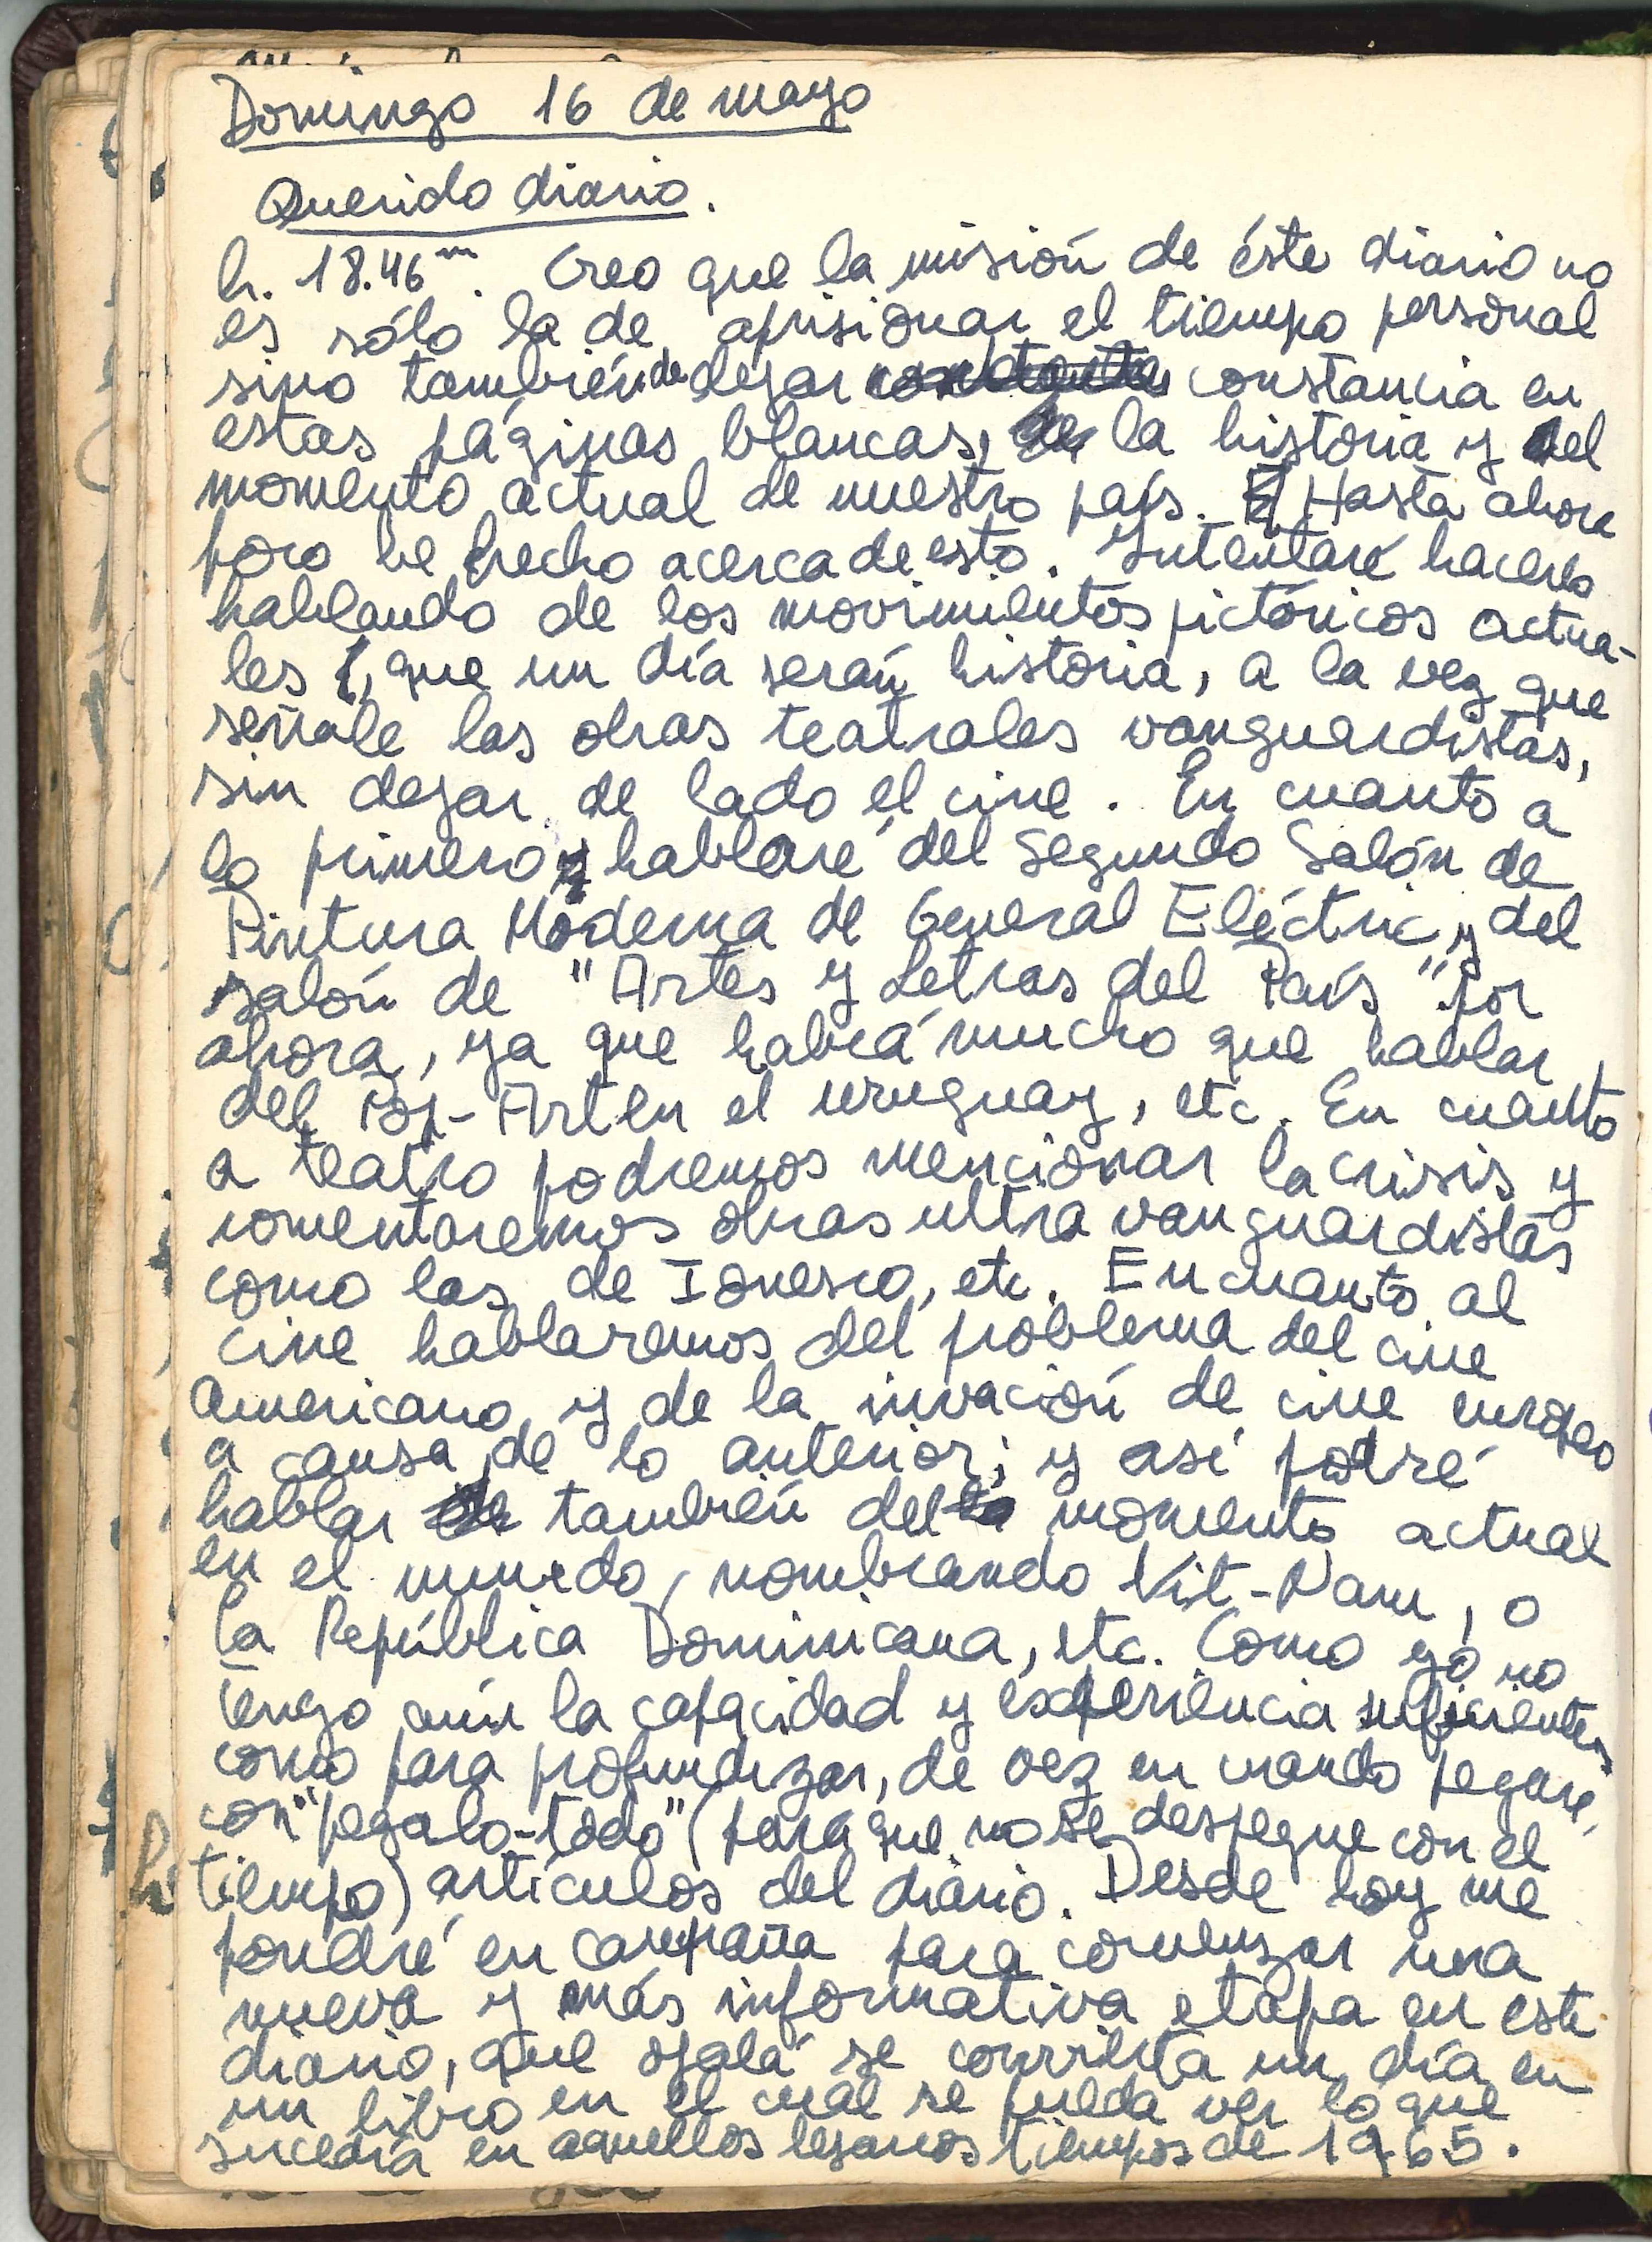 Domingo 16 de mayo
Querido diario.
h. 18.46m. Creo que la misión de éste diario no
es sólo la de aprisionar el tiempo personal
sino también de dejar constancia en
estas páginas blancas, de la historia y del
momento actual de nuestro país. Hasta ahora
poco he hecho acerca de esto. Intentaré hacerlo
hablando de los movimientos pictóricos actua-
les, que un día serán historia, a la vez que
señale las obras teatrales vanguardistas,
sin dejar de lado el cine. En cuanto a
lo primero hablaré del Segundo Salón de
Pintura Moderna de General Eléctric y del
salón de "Artes y Letras del País" por
ahora, ya que habrá mucho que hablar
del Pop-Art en el uruguay, etc. En cuanto
a teatro podremos mencionar la crisis y
comentaremos obras ultra vanguardistas
como las de Ionesco, etc. En cuanto al
cine hablaremos del problema del cine
americano y de la invación de cine europeo
a causa de lo anterior; y así podré
hablar también del momento actual
en el mundo, nombrando Vit-Nam, o
la República Dominicana, etc. Como yo no
tengo aún la capacidad y experiencia suficientes
como para profundizar, de vez en cuando pegaré,
con "pegalo-todo" (para que no se despegue con el
tiempo) artículos del diario. Desde hoy me
pondré en campaña para comenzar una
nueva y más informativa etapa en este
diario, que ojalá se convierta un día en
un libro en el cuál se pueda ver lo que
sucedía en aquellos lejanos tiempos de 1965.